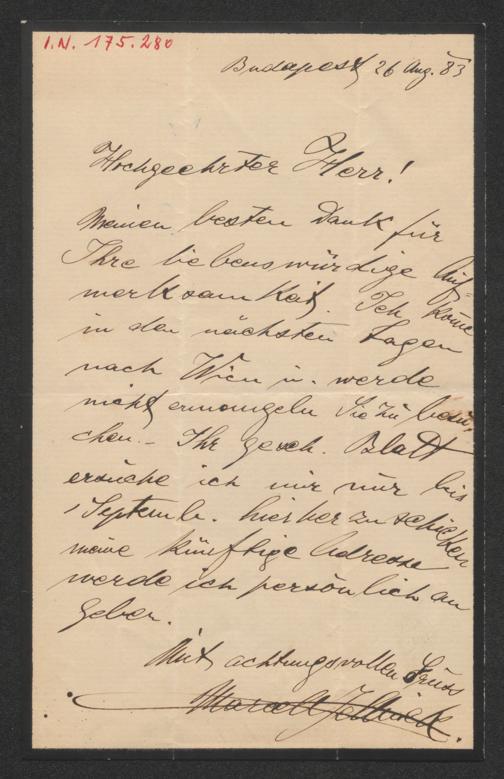 I.N. 175.280
Budapest 26 Aug. 83
Hochgeehrter Herr!
Meinen besten Dank für
Ihre liebenswürdige Auf-
merksamkeit. Ich kome
in den nächsten Tagen
nach Wien u. werde
nicht ermangeln Sie zu besu-
chen.- Ihr gesch. Blatt
ersuche ich mir nur bis
1 Septemb. hierher zu schicken
meine künftige Adresse
werde ich persönlich an
geben.
Mit achtungsvollen Gruss